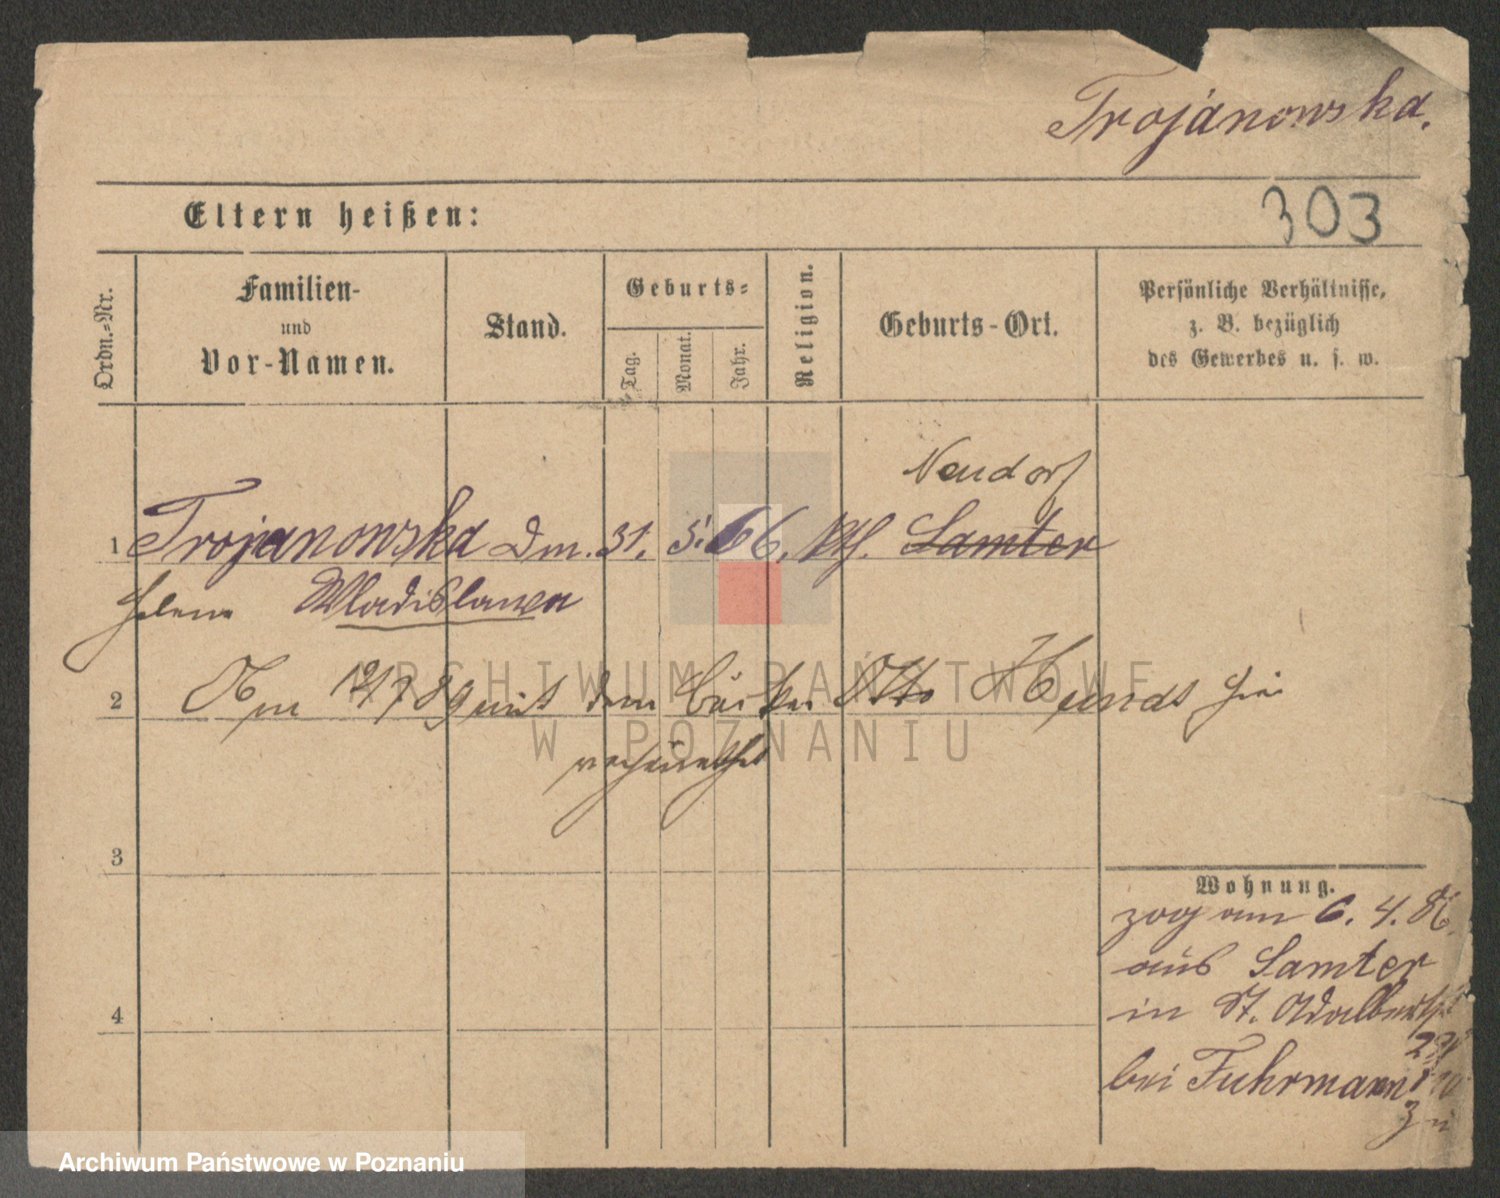 Trojanowska.
303
Eltern heißen:
Ordn.-Nr.
Familien-
und
Vor-Namen.
Stand.
Geburts-
Tag.
Monat.
Jahr.
Religion.
Geburts-Ort.
Persönliche Verhältnisse,
z. B. bezüglich
des Gewerbes u. s. w.
Neudorf
1 Trojanowska Dm. 31. 5. 66. kth. Samter
Helene Wladislawa
2 Am 12/7 89 mit dem Bäcker Otto Hundt hier
verheirathet
3
Wohnung.
zog am 6. 4. 86.
aus Samter
in St. Adalbertstr
4
bei Fuhrmann
zu
ARCHIWUM PAŃSTWOWE
W POZNANIU
Archiwum Państwowe w Poznaniu